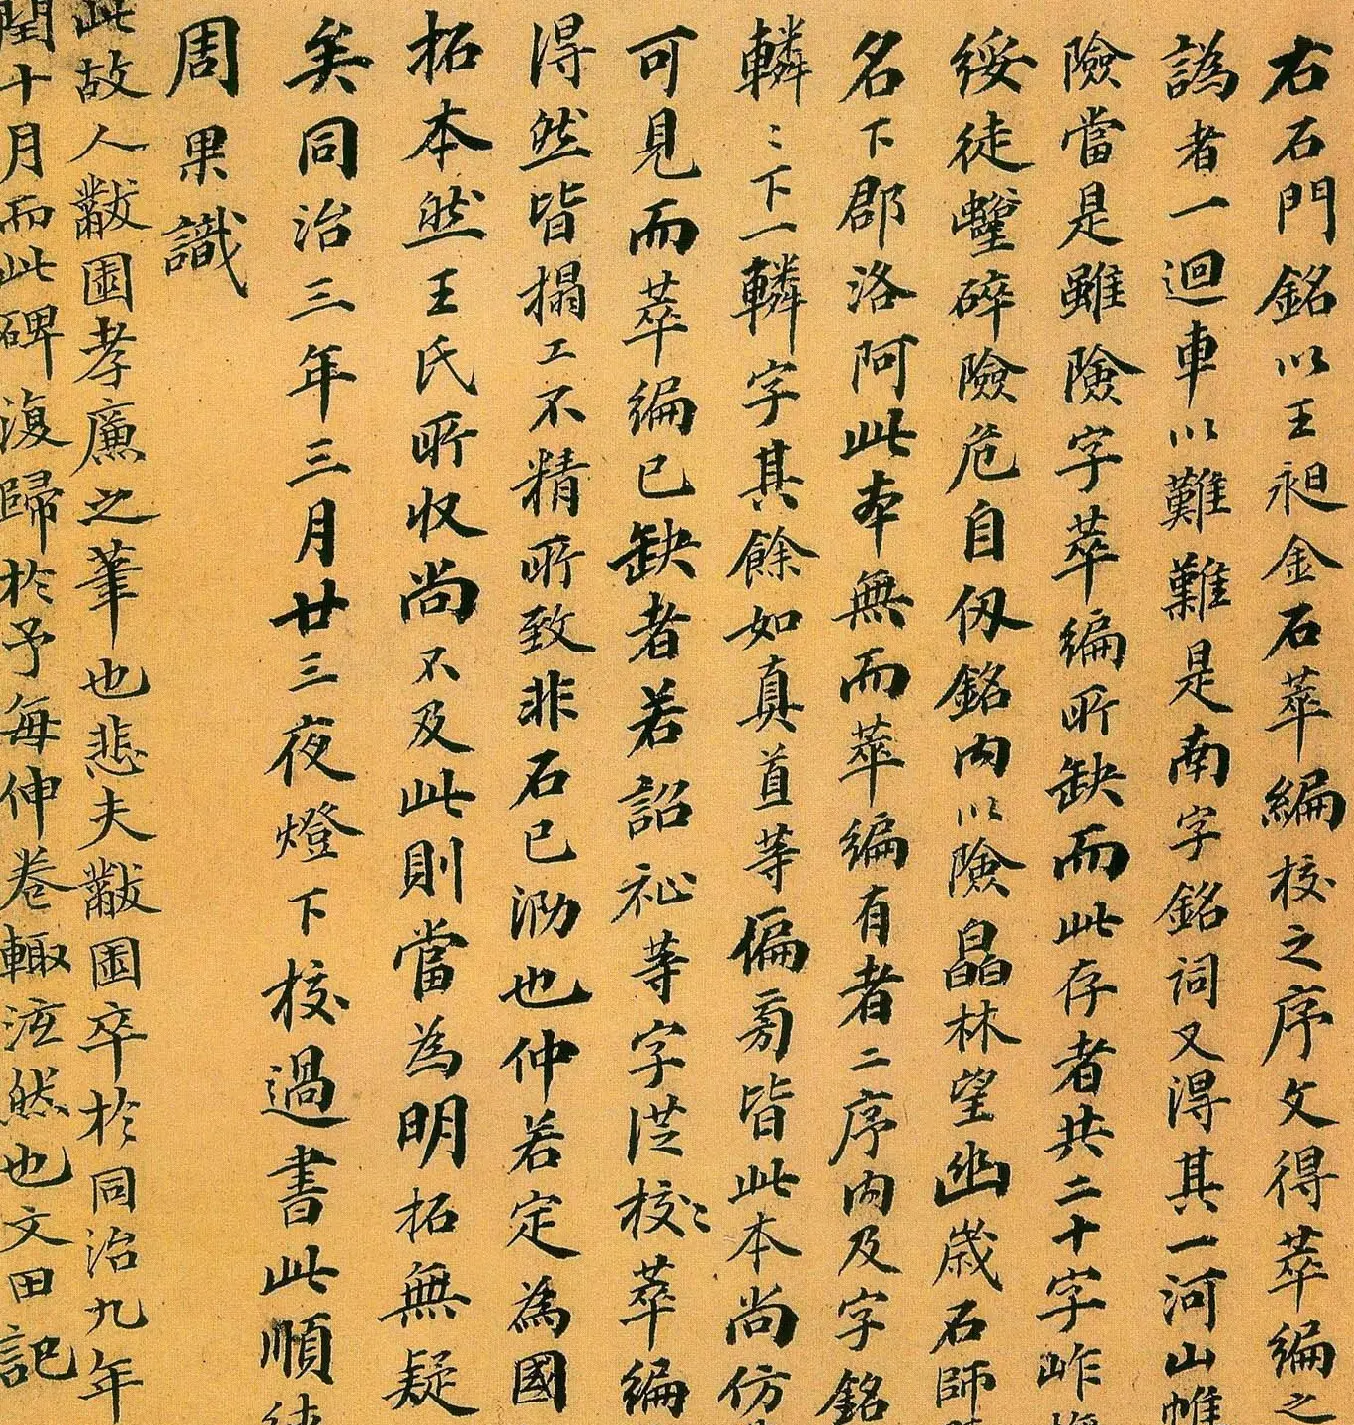 右石門銘以王昶金石萃編校之序文得萃編之
譌者一迴車以難難是南字銘詞又得其一河山帷
險當是雖險字萃編所缺而此存者共二十字岞
綏徒蠬碎險危自仭銘內以險皛林望幽歲石師
名下郡洛阿此本無而萃編有者二序內及字銘
轔〻下一轔字其餘如真直等偏旁皆此本尚仿
可見而萃編已缺者若詔祉等字從校〻萃編
得然皆搨工不精所致非石已泐也仲若定為國
拓本然王氏所收尚不及此則當為明拓無疑
矣同治三年三月廿三夜燈下校過書此順
周果識
此故人黻園孝廉之筆也悲夫黻園卒於同治九年
閏十月而此碑復歸於予每伸卷輙泫然也文田記